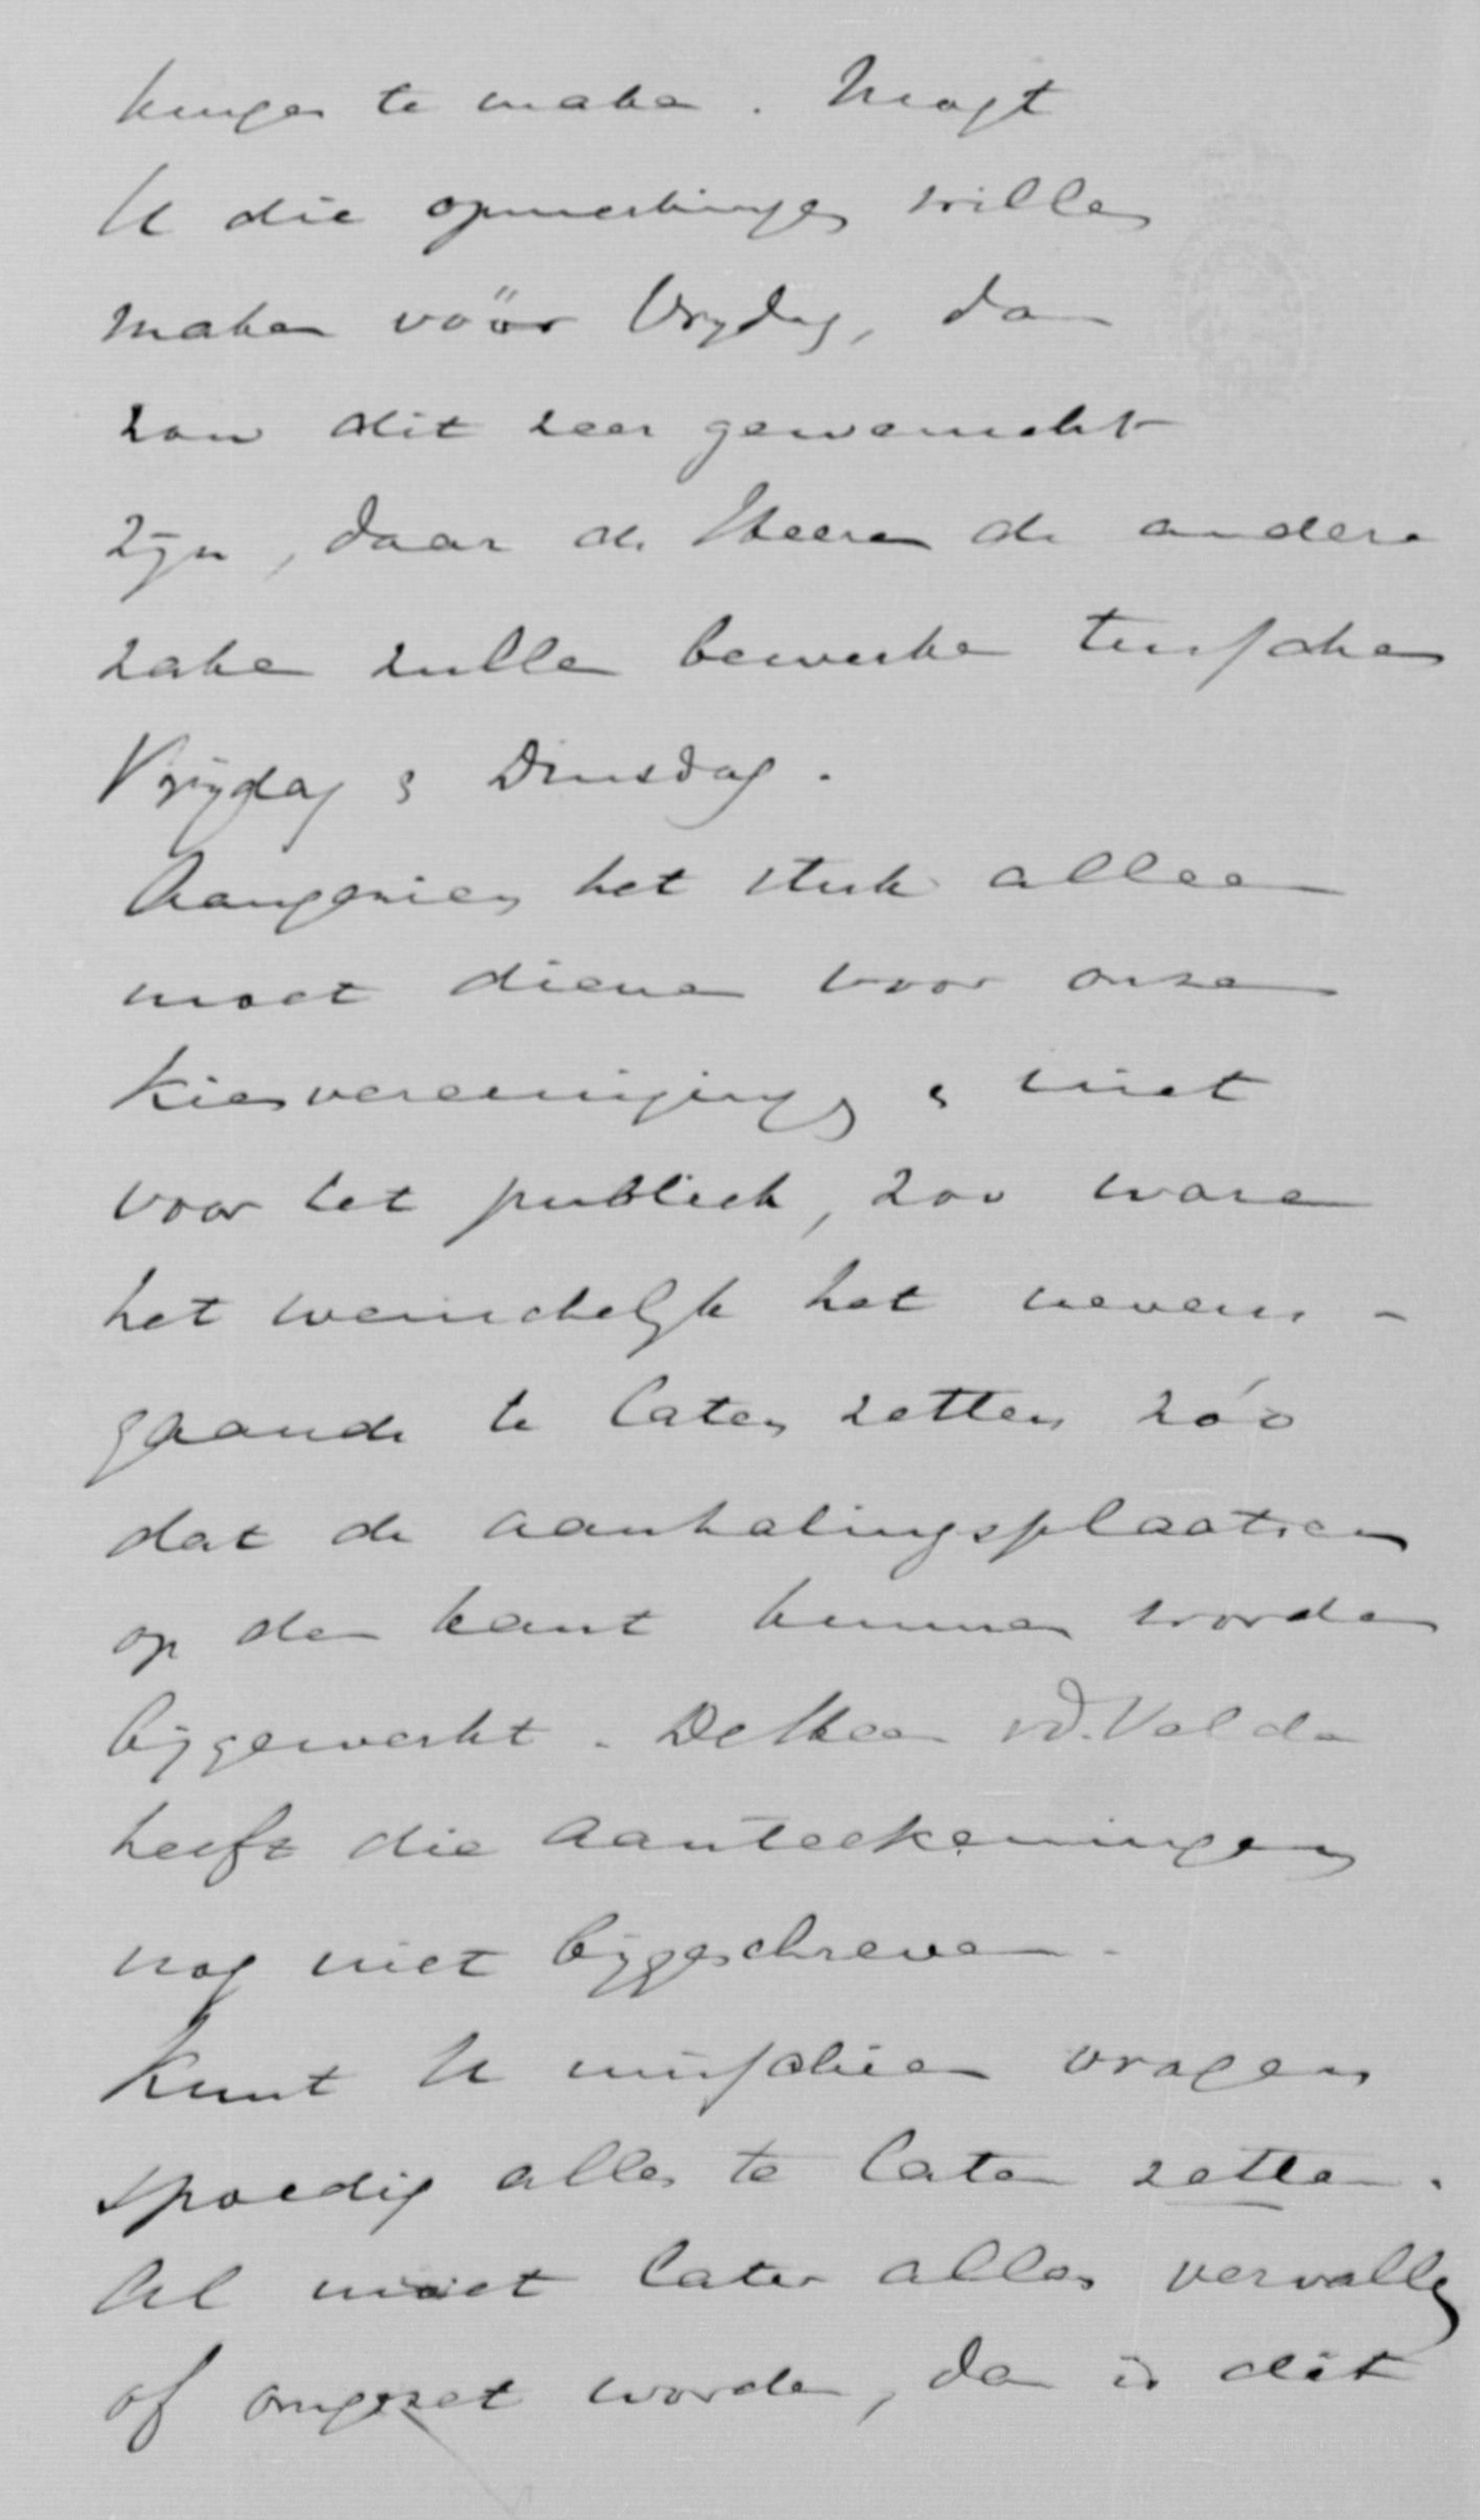 kingen te maken. Mogt
U die opmerkingen willen
maken vóór Vrydag, dan
zou dit zeer gewenscht
zijn, daar de Heeren de andere
zaken zullen bewerken tusschen
Vrijdag & Dinsdag.
Aangezien het stuk alleen
moet dienen voor onze
kiesvereenigingen & niet
voor het publiek, zoo ware
het wenschelijk het nevens-
gaande te laten zetten zóo
dat de aanhalingsplaatsen
op den kant kunnen worden
bijgewerkt. De Heer v.d. Velde
heeft die aanteekeningen
nog niet bijgeschreven.
Kunt U misschien vragen
spoedig alles te laten zetten.
Al moet later alles vervallen
of omgezet worden, dan is dit